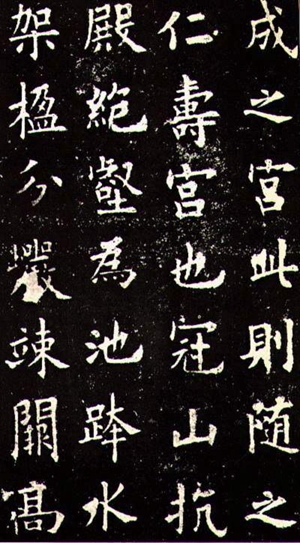 成之宮此則隨之
仁壽宮也冠山抗
殿絕壑為池跨水
架楹分巖竦闕高